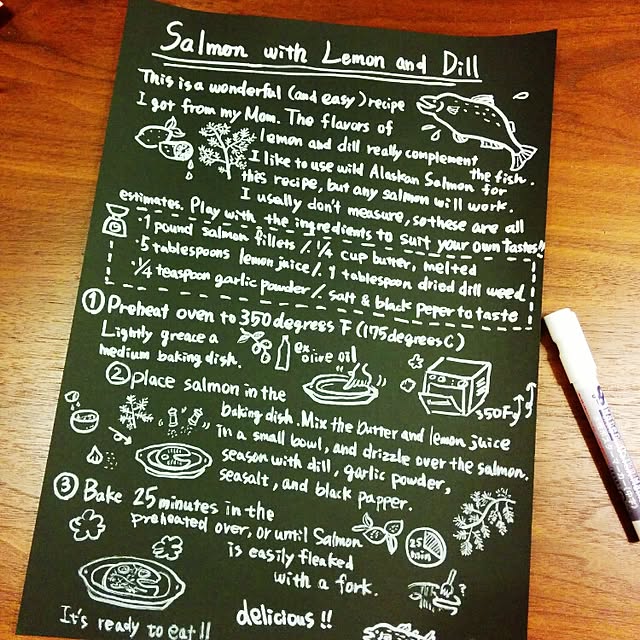 Salmon with Lemon and Dill
This is a wonderful (and easy) recipe
I got from my Mom. The flavors of
lemon and dill really complement
the fish.
I like to use wild Alaskan Salmon for
this recipe, but any salmon will work.
I usally don't measure, so these are all
estimates. Play with the ingredients to suit your own tastes!!
・1 pound salmon fillets /. 1/4 cup butter, melted
・5 tablespoons lemon juice /. 1 tablespoon dried drill weed
・1/4 teaspoon garlic powder /. salt & black peper to taste
① Preheat oven to 350 degrees F (175 degrees C)
Lightly greace a
medium baking dish.
ex. olive oil
② place salmon in the
350F
baking dish. Mix the butter and lemon juice
in a small bowl, and drizzle over the salmon.
season with dill, garlic powder,
seasalt, and black papper.
③ Bake 25 minutes in the
preheated over, or until Salmon
is easily fleaked
with a fork.
25 min
It's ready to eat!!
delicious!!